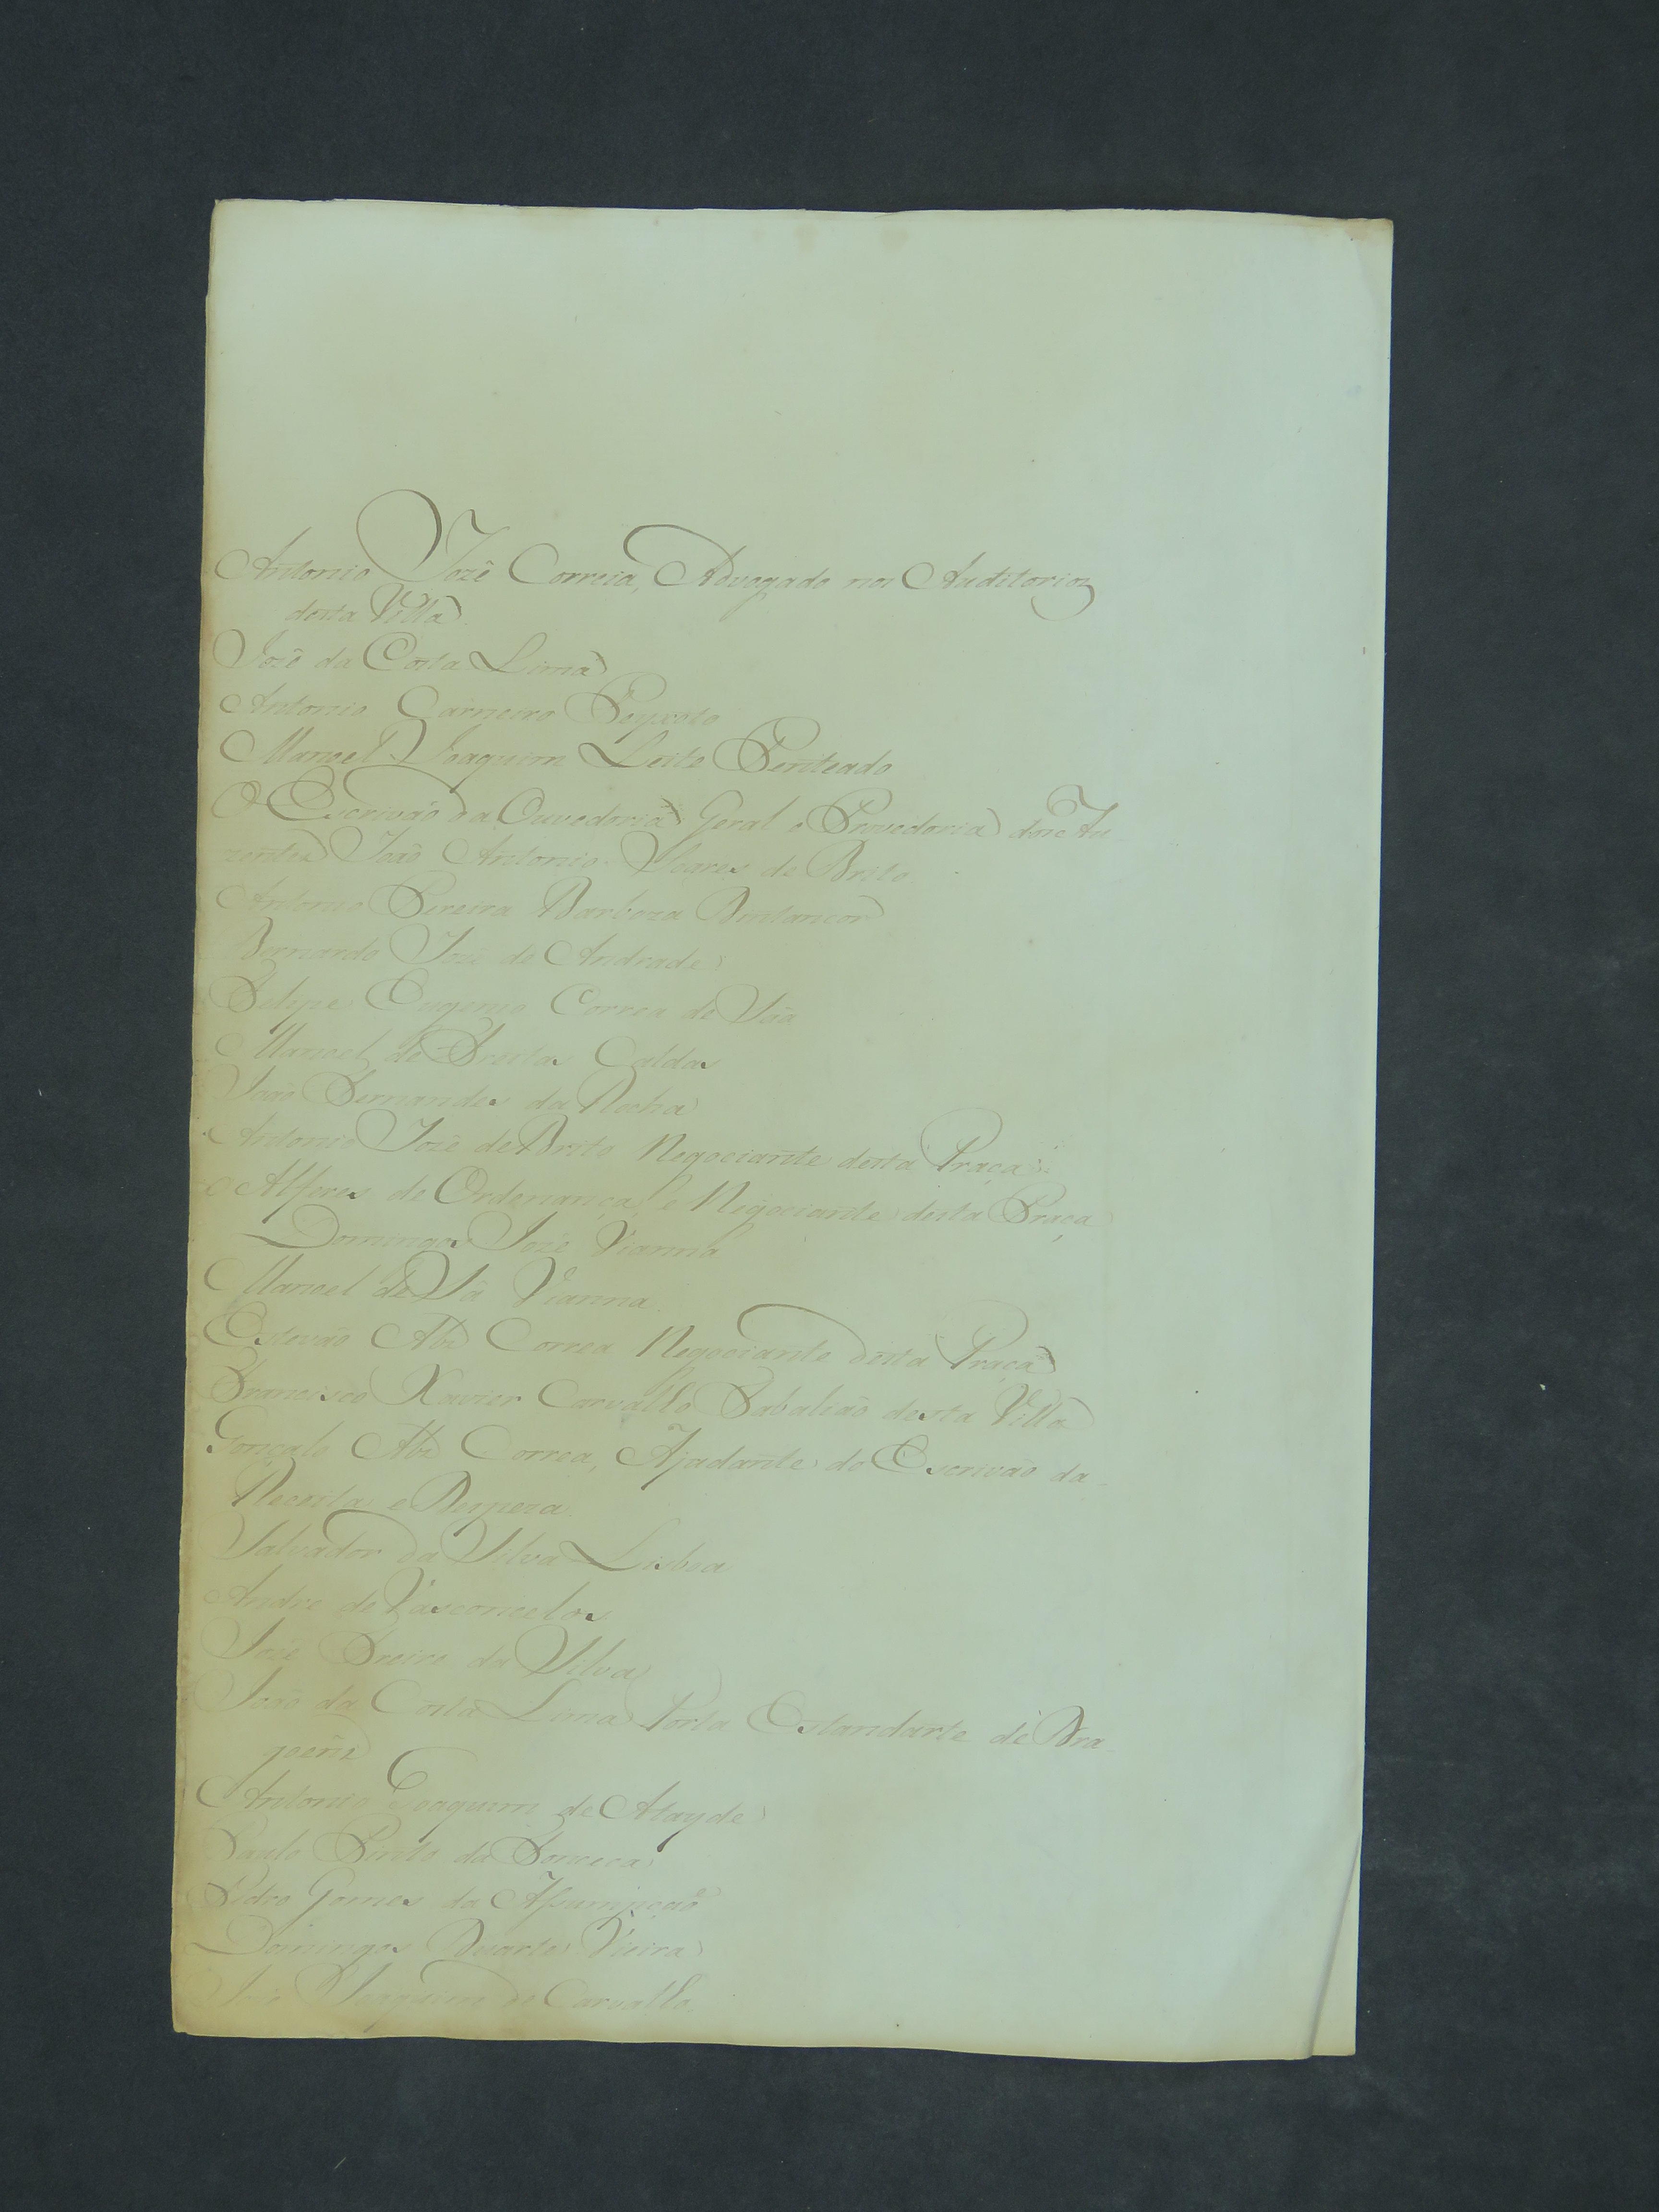 Antonio Jozé Correia, Advogado nos Auditorios
desta Villa
Jozé da Costa Lima
Antonio Carneiro Peyxoto
Manoel Joaquim Leite Penteado
O Escrivão da Ouvedoria Geral e Provedoria dos Au-
zentes João Antonio Soares de Brito
Antonio Pereira Barboza Bintancor
Bernardo Jozé de Andrade
Felipe Eugenio Correa de Sáa
Manoel de Freitas Caldas
João Fernandes da Rocha
Antonio Jozé de Brito Negociante desta Praça
O Alferes de Ordenança, e Negociante desta Praça
Domingos Jozé Vianna
Manoel de Sá Vianna
Estevão Alz Correa Negociante desta Praça
Francisco Xavier Carvalho Tabalião desta Villa
Gonçalo Alz Correa, Ajudante do Escrivão da
Receita e Despeza.
Salvador da Silva Lisboa
Andre de Vasconcelos
Jozé Freire da Silva
João da Costa Lima Porta Estandarte de Dra-
goens
Antonio Joaquim de Atayde
Paulo Pinto da Fonceca
Pedro Gomes da Assumpção
Domingos Duarte Vieira
Joaquim de Carvalho